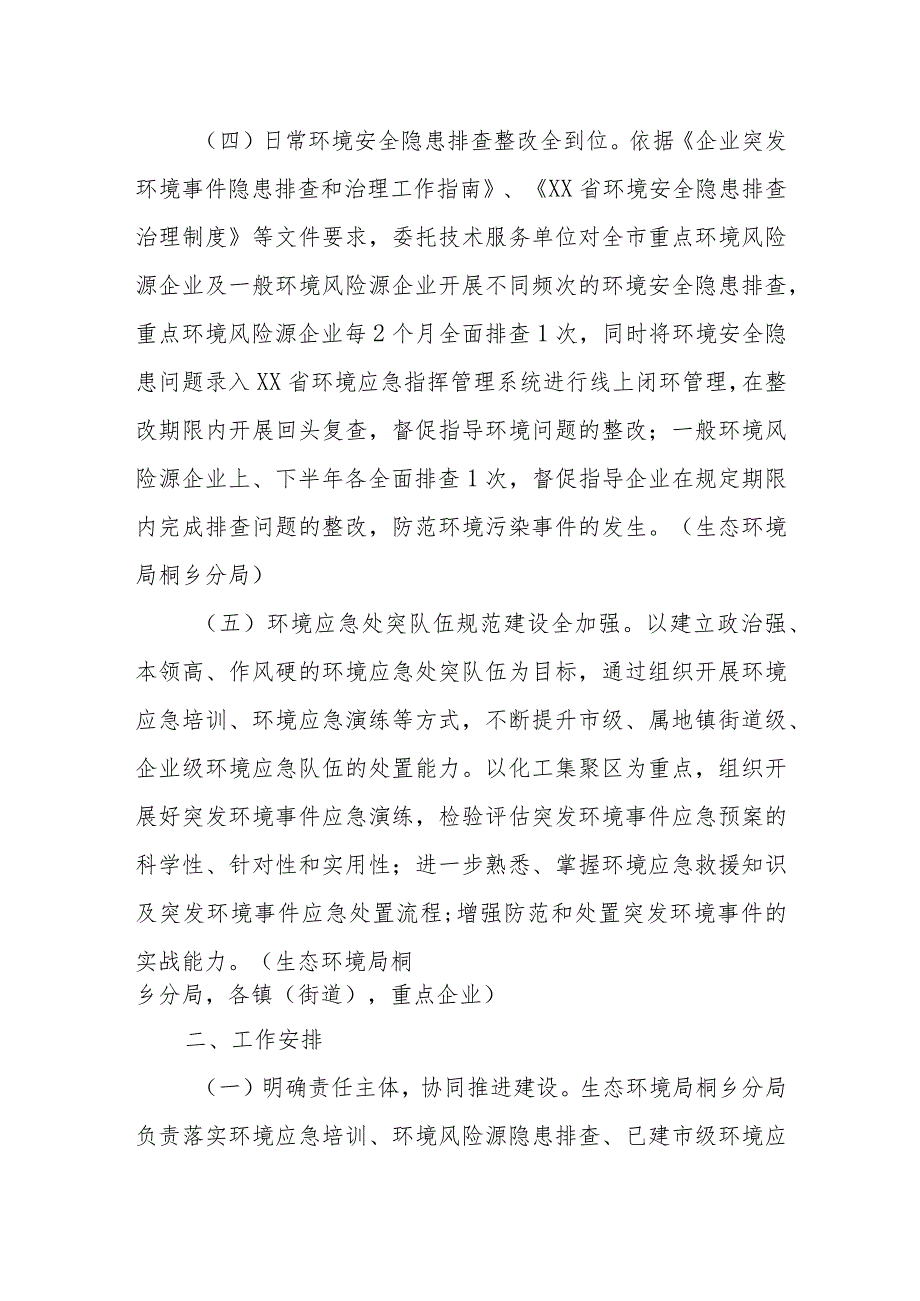 （四）日常环境安全隐患排查整改全到位。依据《企业突发
环境事件隐患排查和治理工作指南》、《XX 省环境安全隐患排查
治理制度》等文件要求，委托技术服务单位对全市重点环境风险
源企业及一般环境风险源企业开展不同频次的环境安全隐患排查，
重点环境风险源企业每 2 个月全面排查 1 次，同时将环境安全隐
患问题录入 XX 省环境应急指挥管理系统进行线上闭环管理,在整
改期限内开展回头复查，督促指导环境问题的整改；一般环境风
险源企业上、下半年各全面排查 1 次，督促指导企业在规定期限
内完成排查问题的整改，防范环境污染事件的发生。（生态环境
局桐乡分局）
（五）环境应急处突队伍规范建设全加强。以建立政治强、
本领高、作风硬的环境应急处突队伍为目标，通过组织开展环境
应急培训、环境应急演练等方式，不断提升市级、属地镇街道级、
企业级环境应急队伍的处置能力。以化工集聚区为重点，组织开
展好突发环境事件应急演练，检验评估突发环境事件应急预案的
科学性、针对性和实用性；进一步熟悉、掌握环境应急救援知识
及突发环境事件应急处置流程;增强防范和处置突发环境事件的
实战能力。（生态环境局桐
乡分局，各镇（街道），重点企业）
二、工作安排
（一）明确责任主体，协同推进建设。生态环境局桐乡分局
负责落实环境应急培训、环境风险源隐患排查、已建市级环境应